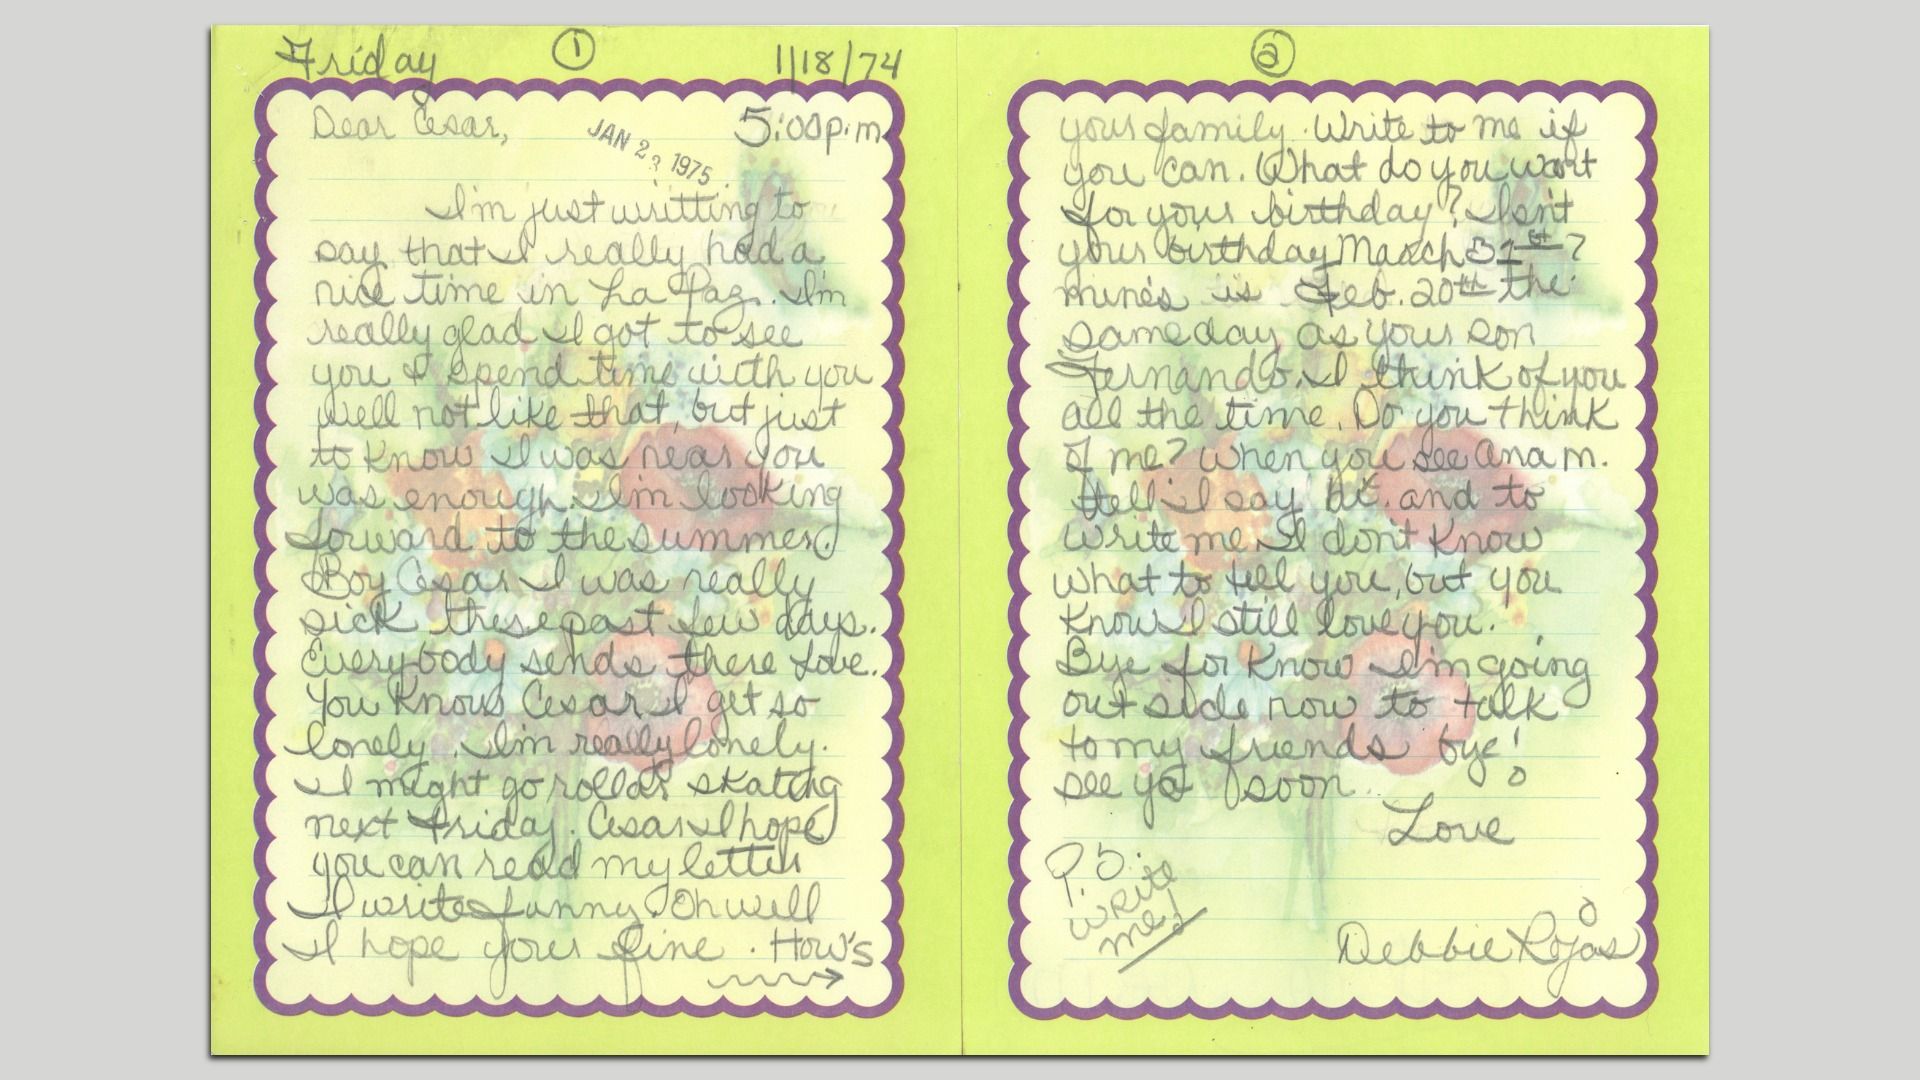 Friday ① 1/18/74
Dear Cesar, 5:00p.m
JAN 23 1975
I'm just writting to
say that I really had a
nice time in La Paz. I'm
really glad I got to see
you & spend time with you
well not like that, but just
to know I was near you
was enough. I'm looking
forward to the summer.
Boy Cesar I was really
sick these past few days.
Everybody sends there Love.
You know Cesar I get so
lonely. I'm really lonely.
I might go roller skating
next friday. Cesar I hope
you can read my letter
I write funny. Oh well
I hope your fine. How's
②
your family. Write to me if
you can. What do you want
for your birthday? Isn't
your birthday March 31st?
mine's is Feb. 20th the
same day as your son
Fernando. I think of you
all the time. Do you think
of me? When you see Ana m.
tell I say hi. and to
write me. I don't know
what to tell you, but you
know I still love you.
Bye for know I'm going
out side now to talk
to my friends bye!
see ya soon.
Love
P.S.
write
me!
Debbie Rojas